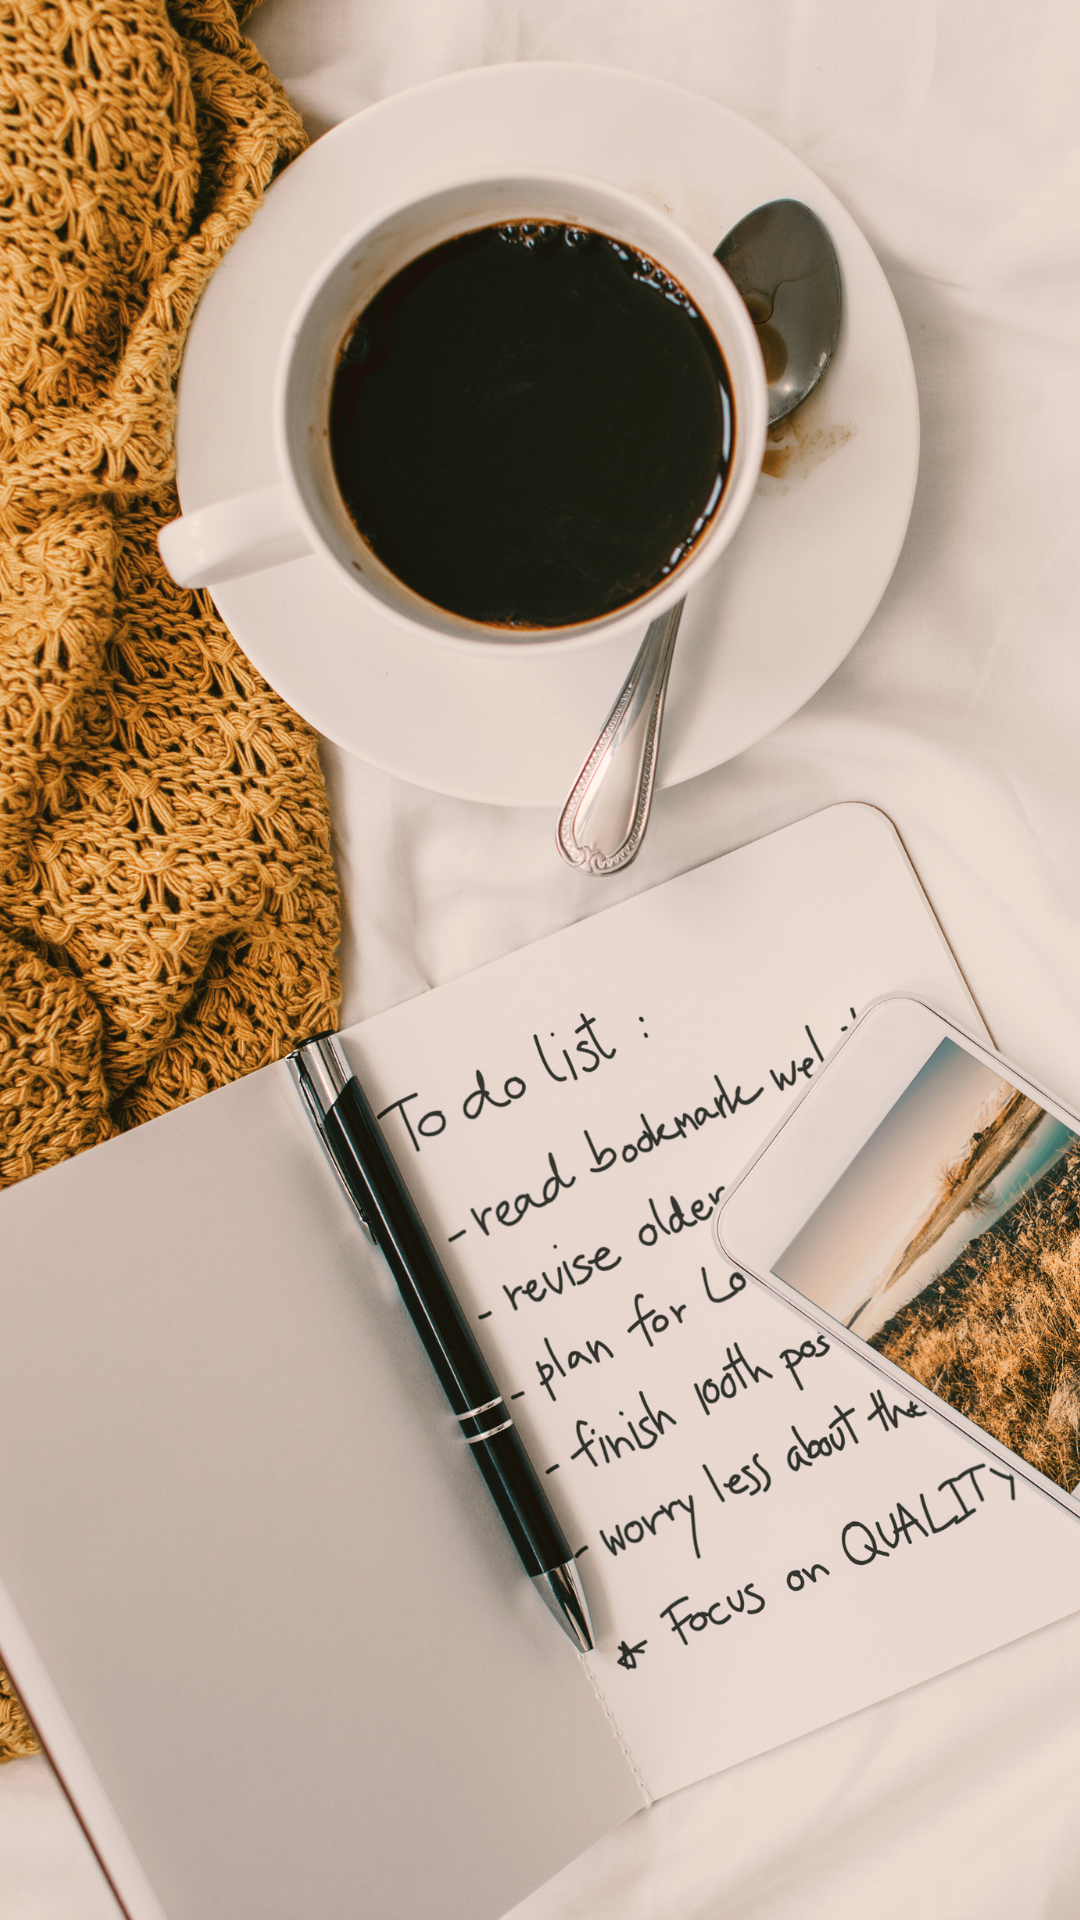 To do list :
- read bookmark
- revise older
- plan for
- finish 100th
- worry less about the
* Focus on QUALITY